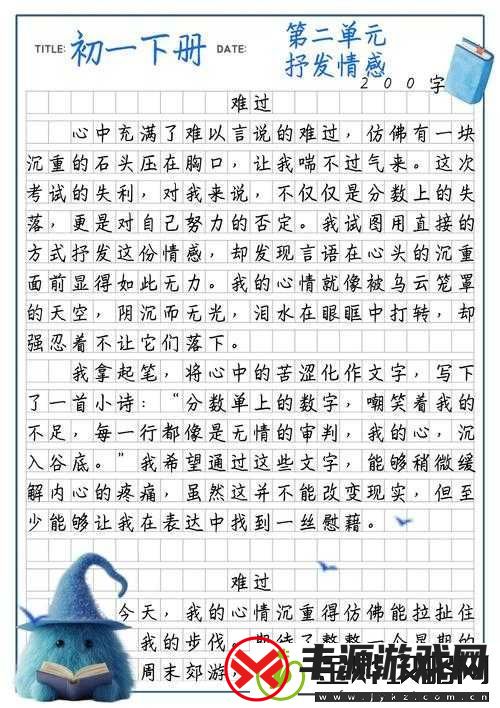 TITLE: 初一下册 DATE: 第二单元
抒发情感
200字
难过
心中充满了难以言说的难过，仿佛有一块
沉重的石头压在胸口，让我喘不过气来。这次
考试的失利，对我来说，不仅仅是分数上的失
落，更是对自己努力的否定。我试图用直接的
方式抒发这份情感，却发现言语在心头的沉重
面前显得如此无力。我的心情就像被乌云笼罩
的天空，阴沉而无光，泪水在眼眶中打转，却
强忍着不让它们落下。
我拿起笔，将心中的苦涩化作文字，写下
了一首小诗：“分数单上的数字，嘲笑着我的
不足，每一行都像是无情的审判，我的心，沉
入谷底。”我希望通过这些文字，能够稍微缓
解内心的疼痛，虽然这并不能改变现实，但至
少能够让我在表达中找到一丝慰藉。
难过
今天，我的心情沉重得仿佛能拉扯住
我的步伐。期待了整整一个星期的
周末郊游，
丰源游戏网
www.jykz.com.cn